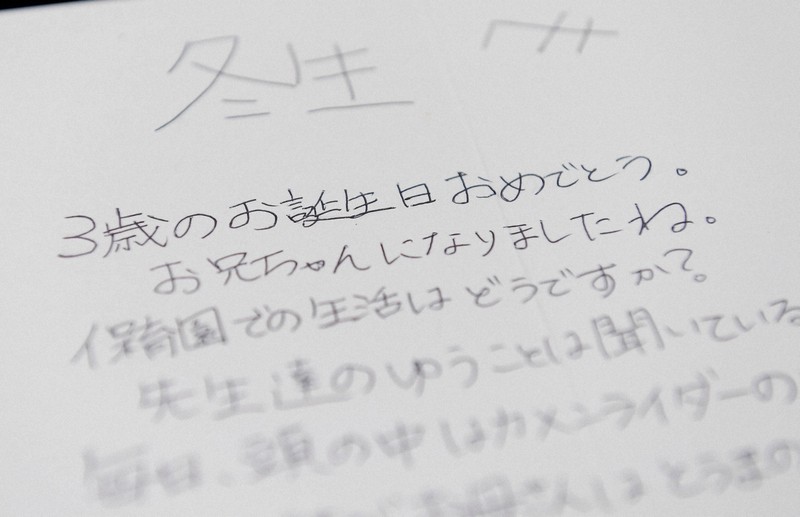 冬生 へ
3歳のお誕生日おめでとう。
お兄ちゃんになりましたね。
保育園での生活はどうですか?
先生達のゆうことは聞いている
毎日、頭の中はカメンライダーの
お母さんはとうまの